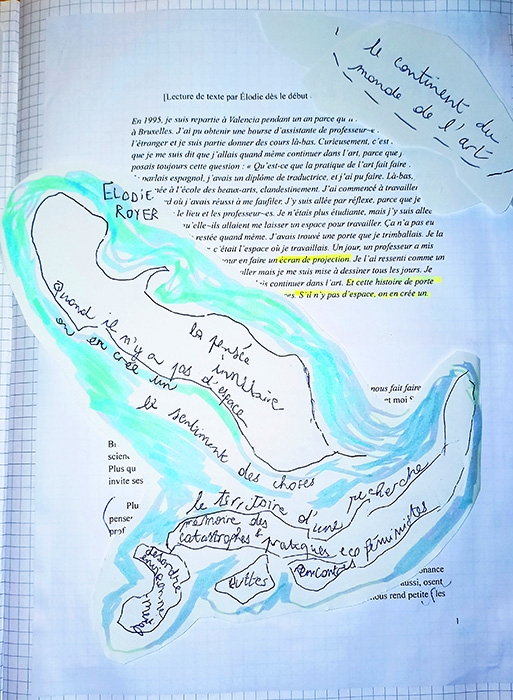 le continent du
monde de l'art
[Lecture de texte par Élodie dès le début
En 1995, je suis repartie à Valencia pendant un an parce qu
à Bruxelles. J'ai pu obtenir une bourse d'assistante de professeur-e
l'étranger et je suis partie donner des cours là-bas. Curieusement, c'est
que je me suis dit que j'allais quand même continuer dans l'art, parce que
posais toujours cette question : « Qu'est-ce que la pratique de l'art fait faire
parlais espagnol, j'avais un diplôme de traductrice, et j'ai pu faire. Là-bas,
née à l'école des beaux-arts, clandestinement. J'ai commencé à travailler
d où j'avais réussi à me faufiler. J'y suis allée par réflexe, parce que je
le lieu et les professeur-es. Je n'étais plus étudiante, mais j'y suis allée
qu'elle-ils allaient me laisser un espace pour travailler. Ça n'a pas eu
restée quand même. J'avais trouvé une porte que je trimballais. Je la
c'était l'espace où je travaillais. Un jour, un professeur a mis
our en faire un écran de projection. Je l'ai ressenti comme un
aller mais je me suis mise à dessiner tous les jours. Je
is continuer dans l'art. Et cette histoire de porte
es. S'il n'y pas d'espace, on en crée un.
ELODIE
ROYER
Quand il n'y a pas d'espace
on en crée un
la pensée
insulaire
le sentiment des choses
nous fait faire
et moi
scien
Plus qu
invite ses
Plu
pense
prof
le territoire d'une recherche
mémoire des
catastrophes & pratiques eco féministes
désordre
environne
mental
Autres
Rencontres
onance
aussi, osent
nous rend petite
les
1